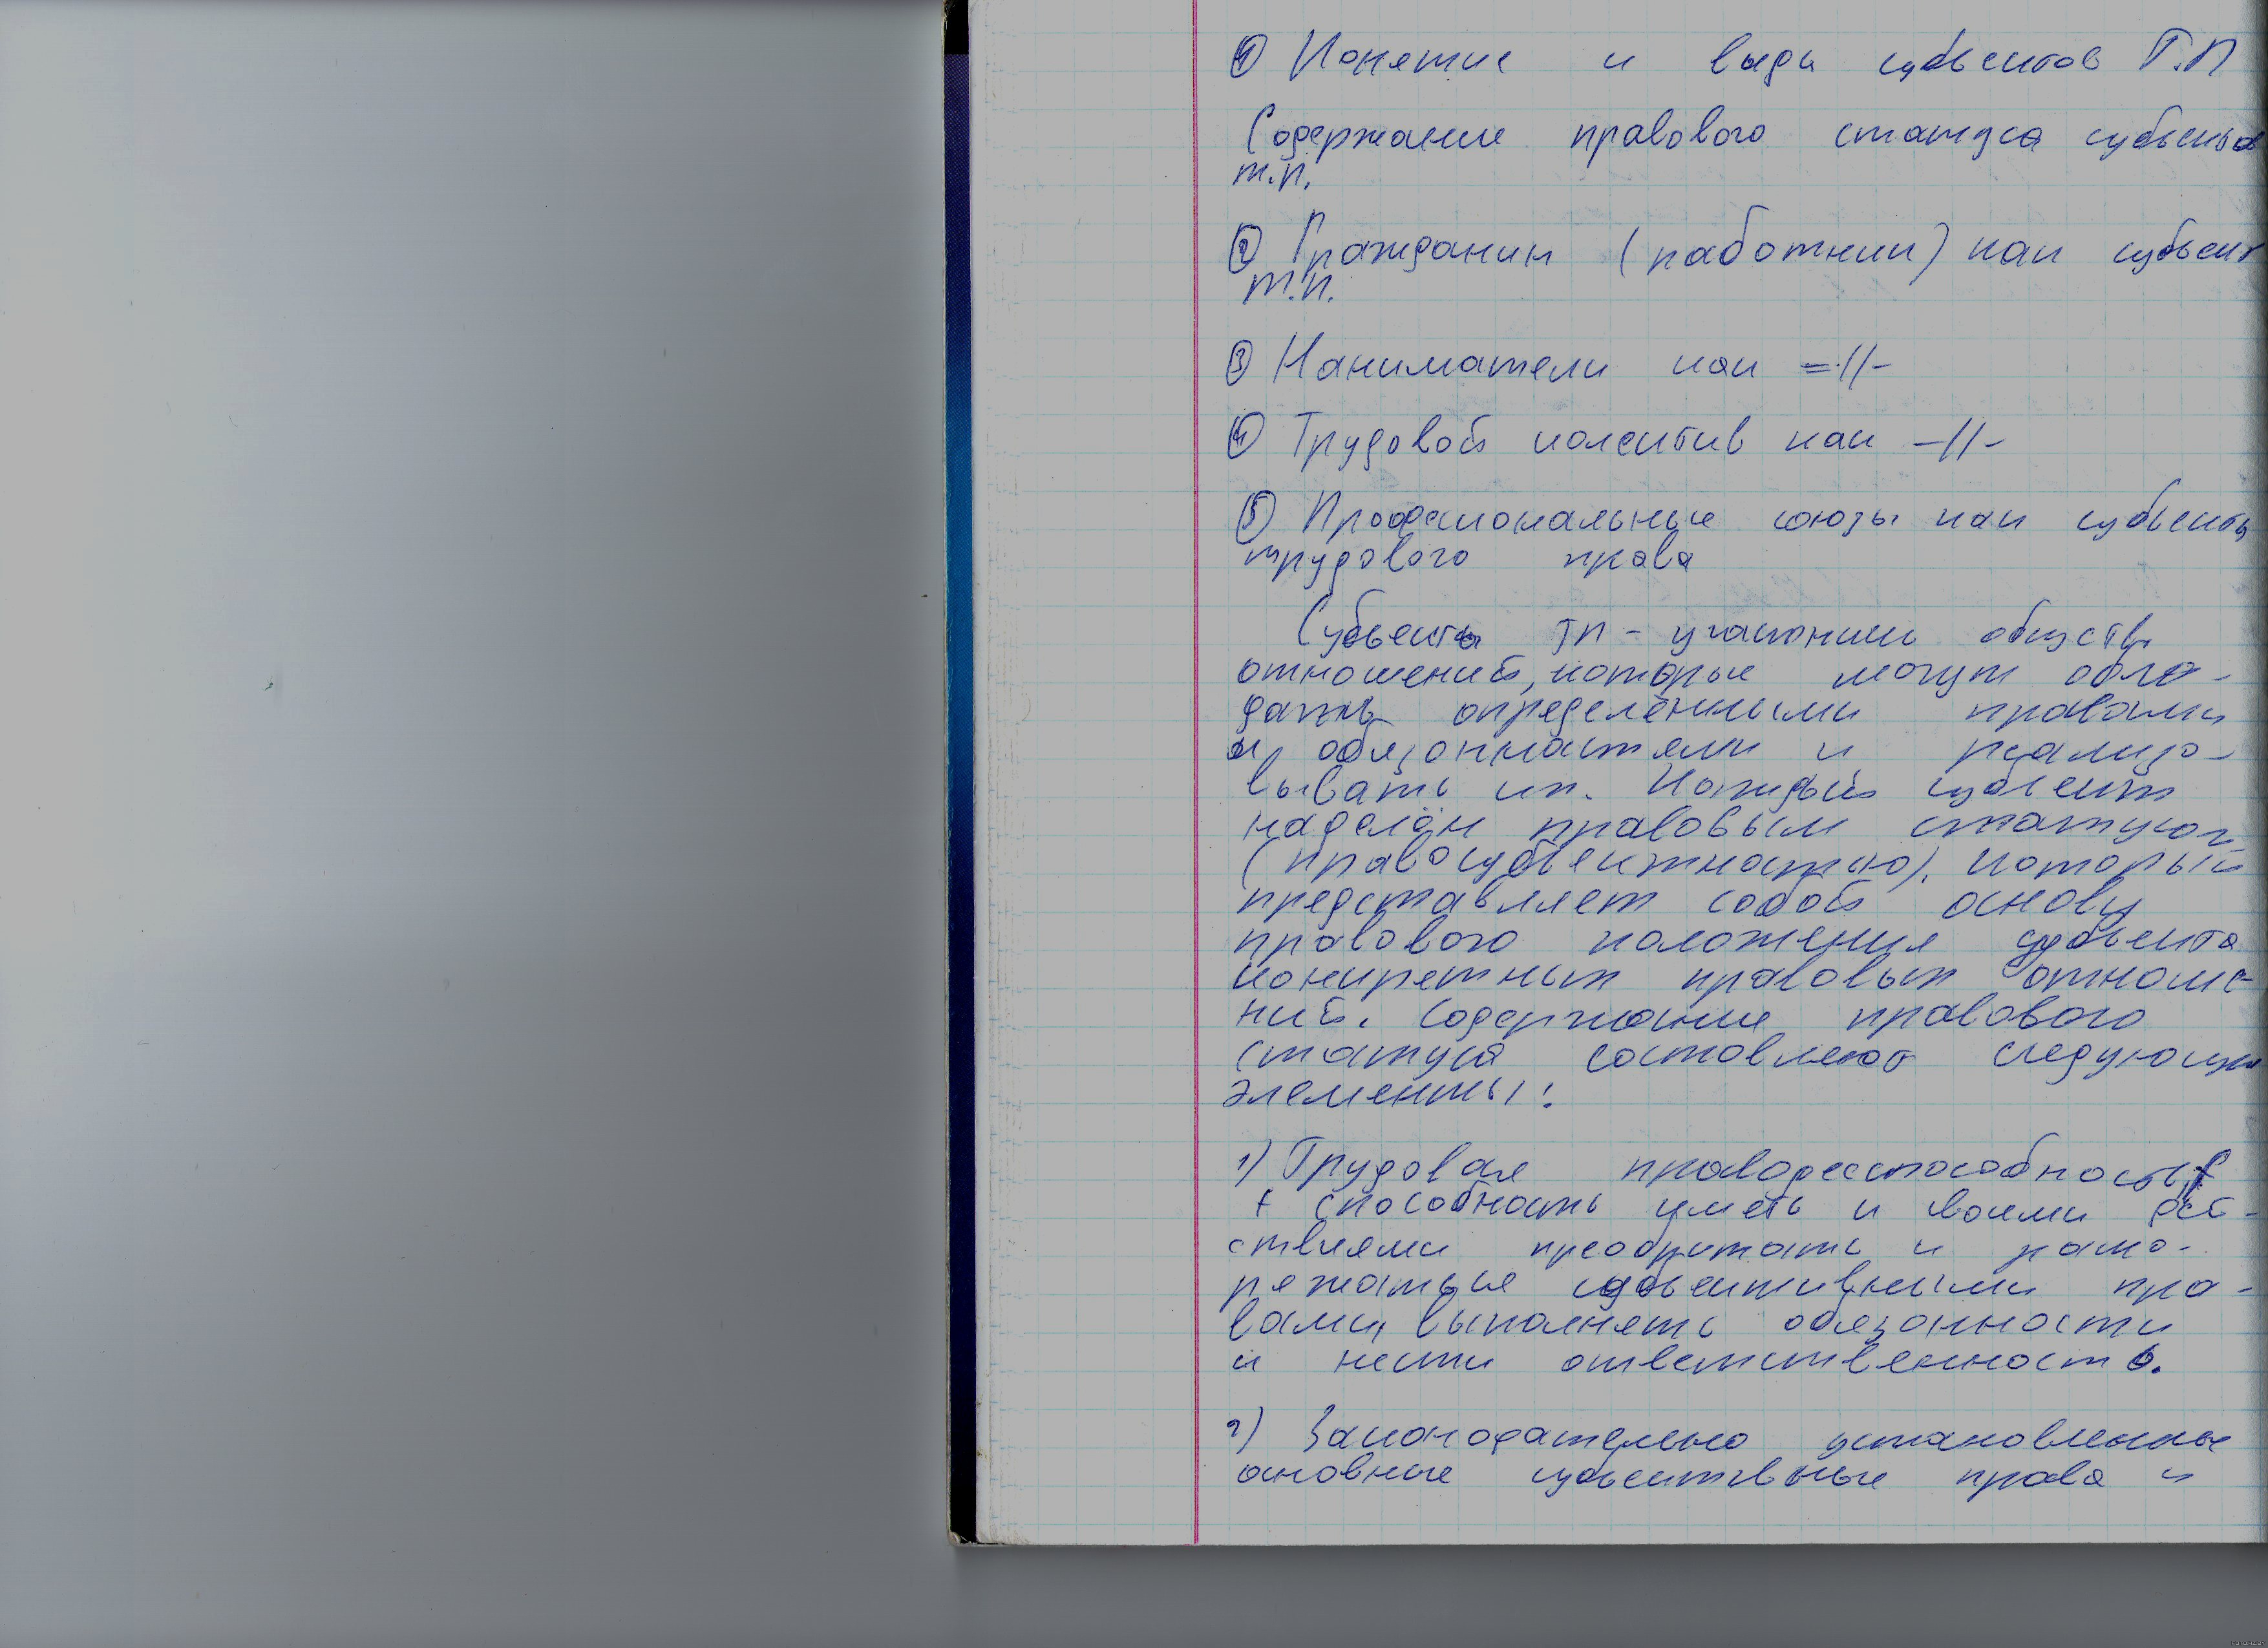 ① Понятие и виды субъектов Т.П
Содержание правового статуса субъекта
т.п.
② Гражданин (работник) как субъект
т.п.
③ Наниматели как =·//-
④ Трудовой колектив как -//-
⑤ Професиональные союзы как субъекты
трудового права
Субъекты ТП - участники обществ.
отношений, которые могут обла-
дать определёнными правами
и обязанностями и реализо-
вывать их. Каждый субъект
наделён правовым статусом
(правосубъектностью), который
представляет собой основу
правового положения субъекта
конкретных правовых отноше-
ний. Содержание правового
статуса составляют следующие
элементы:
1) Трудовая праводееспособность
способность иметь и своими дей-
ствиями преобритать и распо-
ряжаться субъективными пра-
вами, выполнять обязанности
и нести ответственность.
2) Законодательно установленные
основные субъективные права и